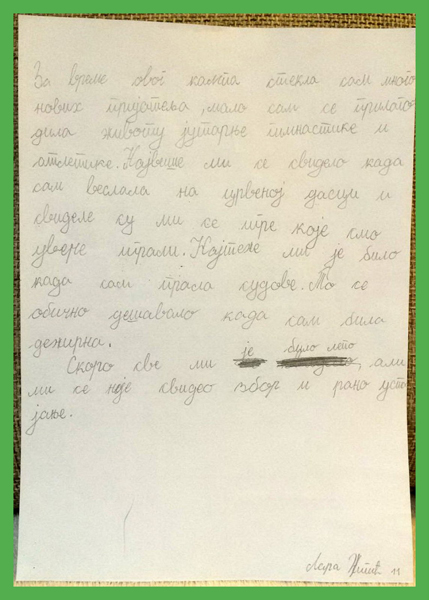 За време овог кампа стекла сам много
нових пријатеља, мало сам се прилаго
дила животу јутарње гимнастике и
атлетике. Највише ми се свидело када
сам веслала на црвеној дасци и
свиделе су ми се игре које смо
увече играли. Најтеже ми је било
када сам прала судове. То се
обично дешавало када сам била
дежурна.
Скоро све ми је било лепо, али
ми се није свидео збор и рано уста
јање.
Лара 11